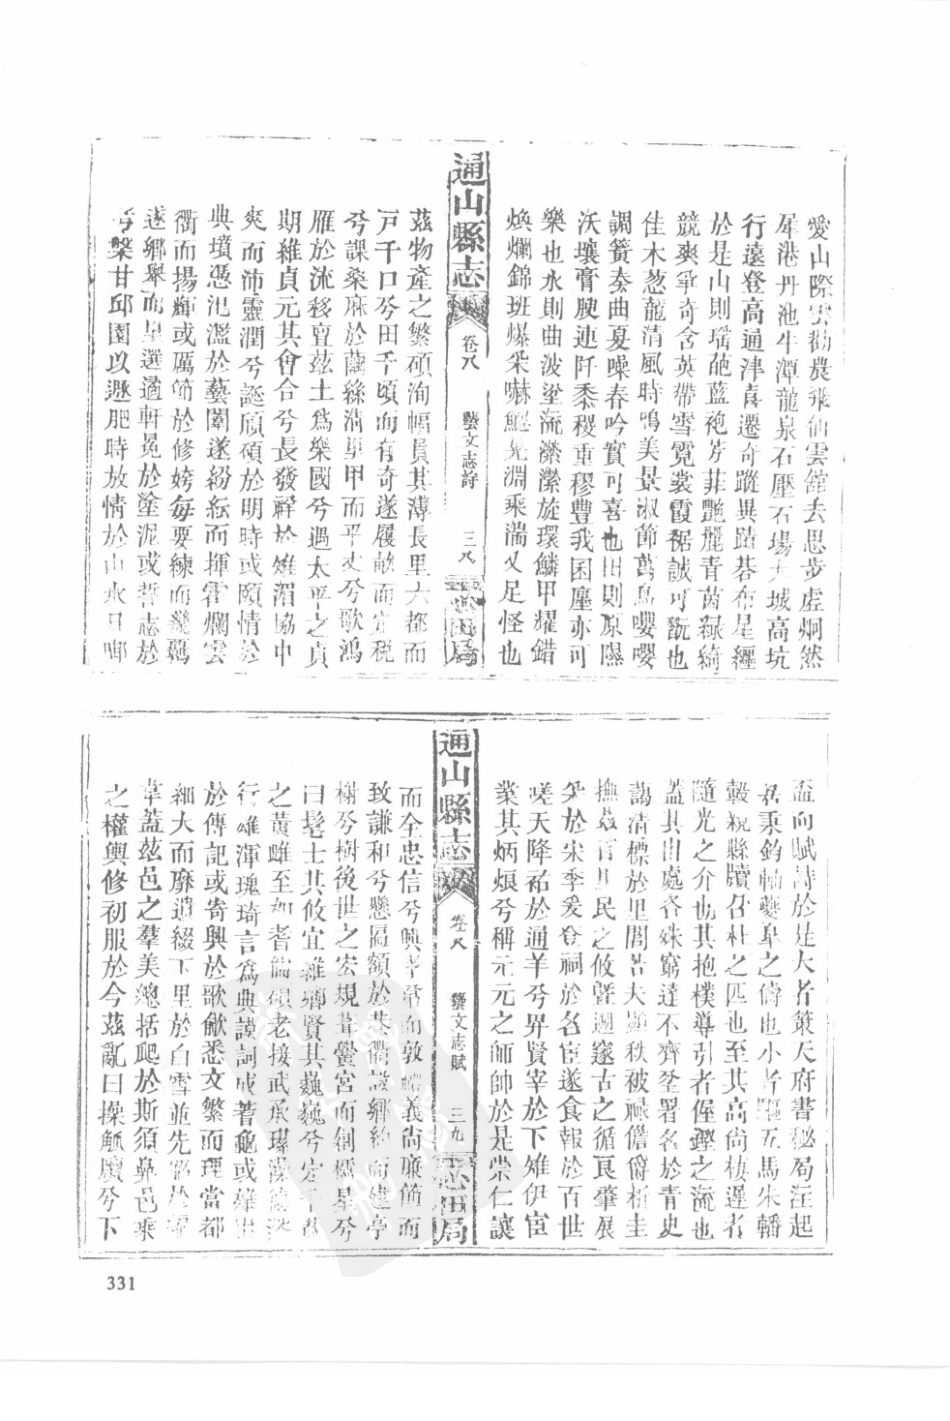 愛山際雲勸農飛仙雲館去思步虛炯然
犀港丹池牛潭龍泉石壓石場大城高坑
行遠登高通津喜遷奇蹤異蹟碁布星纏
於是山則瑤葩藍袍芳菲艷麗青茵綠綺
競爽爭奇含英帶雪霓裳霞裾誠可翫也
佳木葱蘢清風時鳴美景淑節萬鳥嚶嚶
調簧奏曲戛噪春吟實可喜也田則原隰
沃壤膏腴連阡黍稷重穋豐我囷廛亦可
樂也水則曲波塗流瀠瀠旋環鱗甲耀錯
煥爛錦班爆采嚇鯤見淵乘湍又足怪也
通山縣志
卷八
藝文志詩
三八
志田局
茲物產之繁碩洵幅員其薄長里六都而
戸千口兮田千頃而有奇遂履畝而定税
兮課桑麻於繭絲清甲而平丈兮歌鴻
雁於流移亶茲土爲樂國兮過太平之貞
期維貞元其會合兮長發祥於雉湄協中
爽而沛靈潤兮誕頎碩於明時或頤情於
典墳憑汜濫於藝闈遂紛紜而揮霍爛雲
衢而揚輝或厲節於修姱每要練而鞿羈
遂鄉舉而里選適軒冕於塗泥或哲志於
考槃甘邱園以遯肥時放情於山水日啣
盃向賦詩於是大者策天府書秘局汪起
秉鈞軸夔臯之儔也小者驅五馬朱轓
轂親縣牘召杜之匹也至其高尚棲遲者
隨光之介也其抱樸導引者偓鏗之流也
蓋其出處各殊窮達不齊登署名於青史
藹清標於里閭若大順秩被祿儋爵析圭
撫茲百里民之攸曁遡邃古之循良肇展
采於宋季爰登祠於名宦遂食報於百世
嗟天降祐於通羊兮畀賢宰於下雉伊宦
業其炳烺兮稱元元之師帥於是崇仁讓
通山縣志
卷八
藝文志賦
三九
志田局
而全忠信兮興孝弟而敦禮義尚廉節而
致謙和兮懸匾額於巷衢設鄉約而建亭
榭兮樹後世之宏規葺黌宮而創欞星兮
曰髦士其攸宜雝鄉賢其巍巍兮
之黄雖至如者儒碩老接武承
行雄渾瑰琦言爲典謨詞成蓍龜或
於傳記或寄興於歌歈悉文繁而理當都
細大而靡遺綴下里於白雪並先
韋蓋茲邑之羣美總括爬於斯須鼻邑乘
之權輿修初服於今茲亂曰操觚牘兮下
331